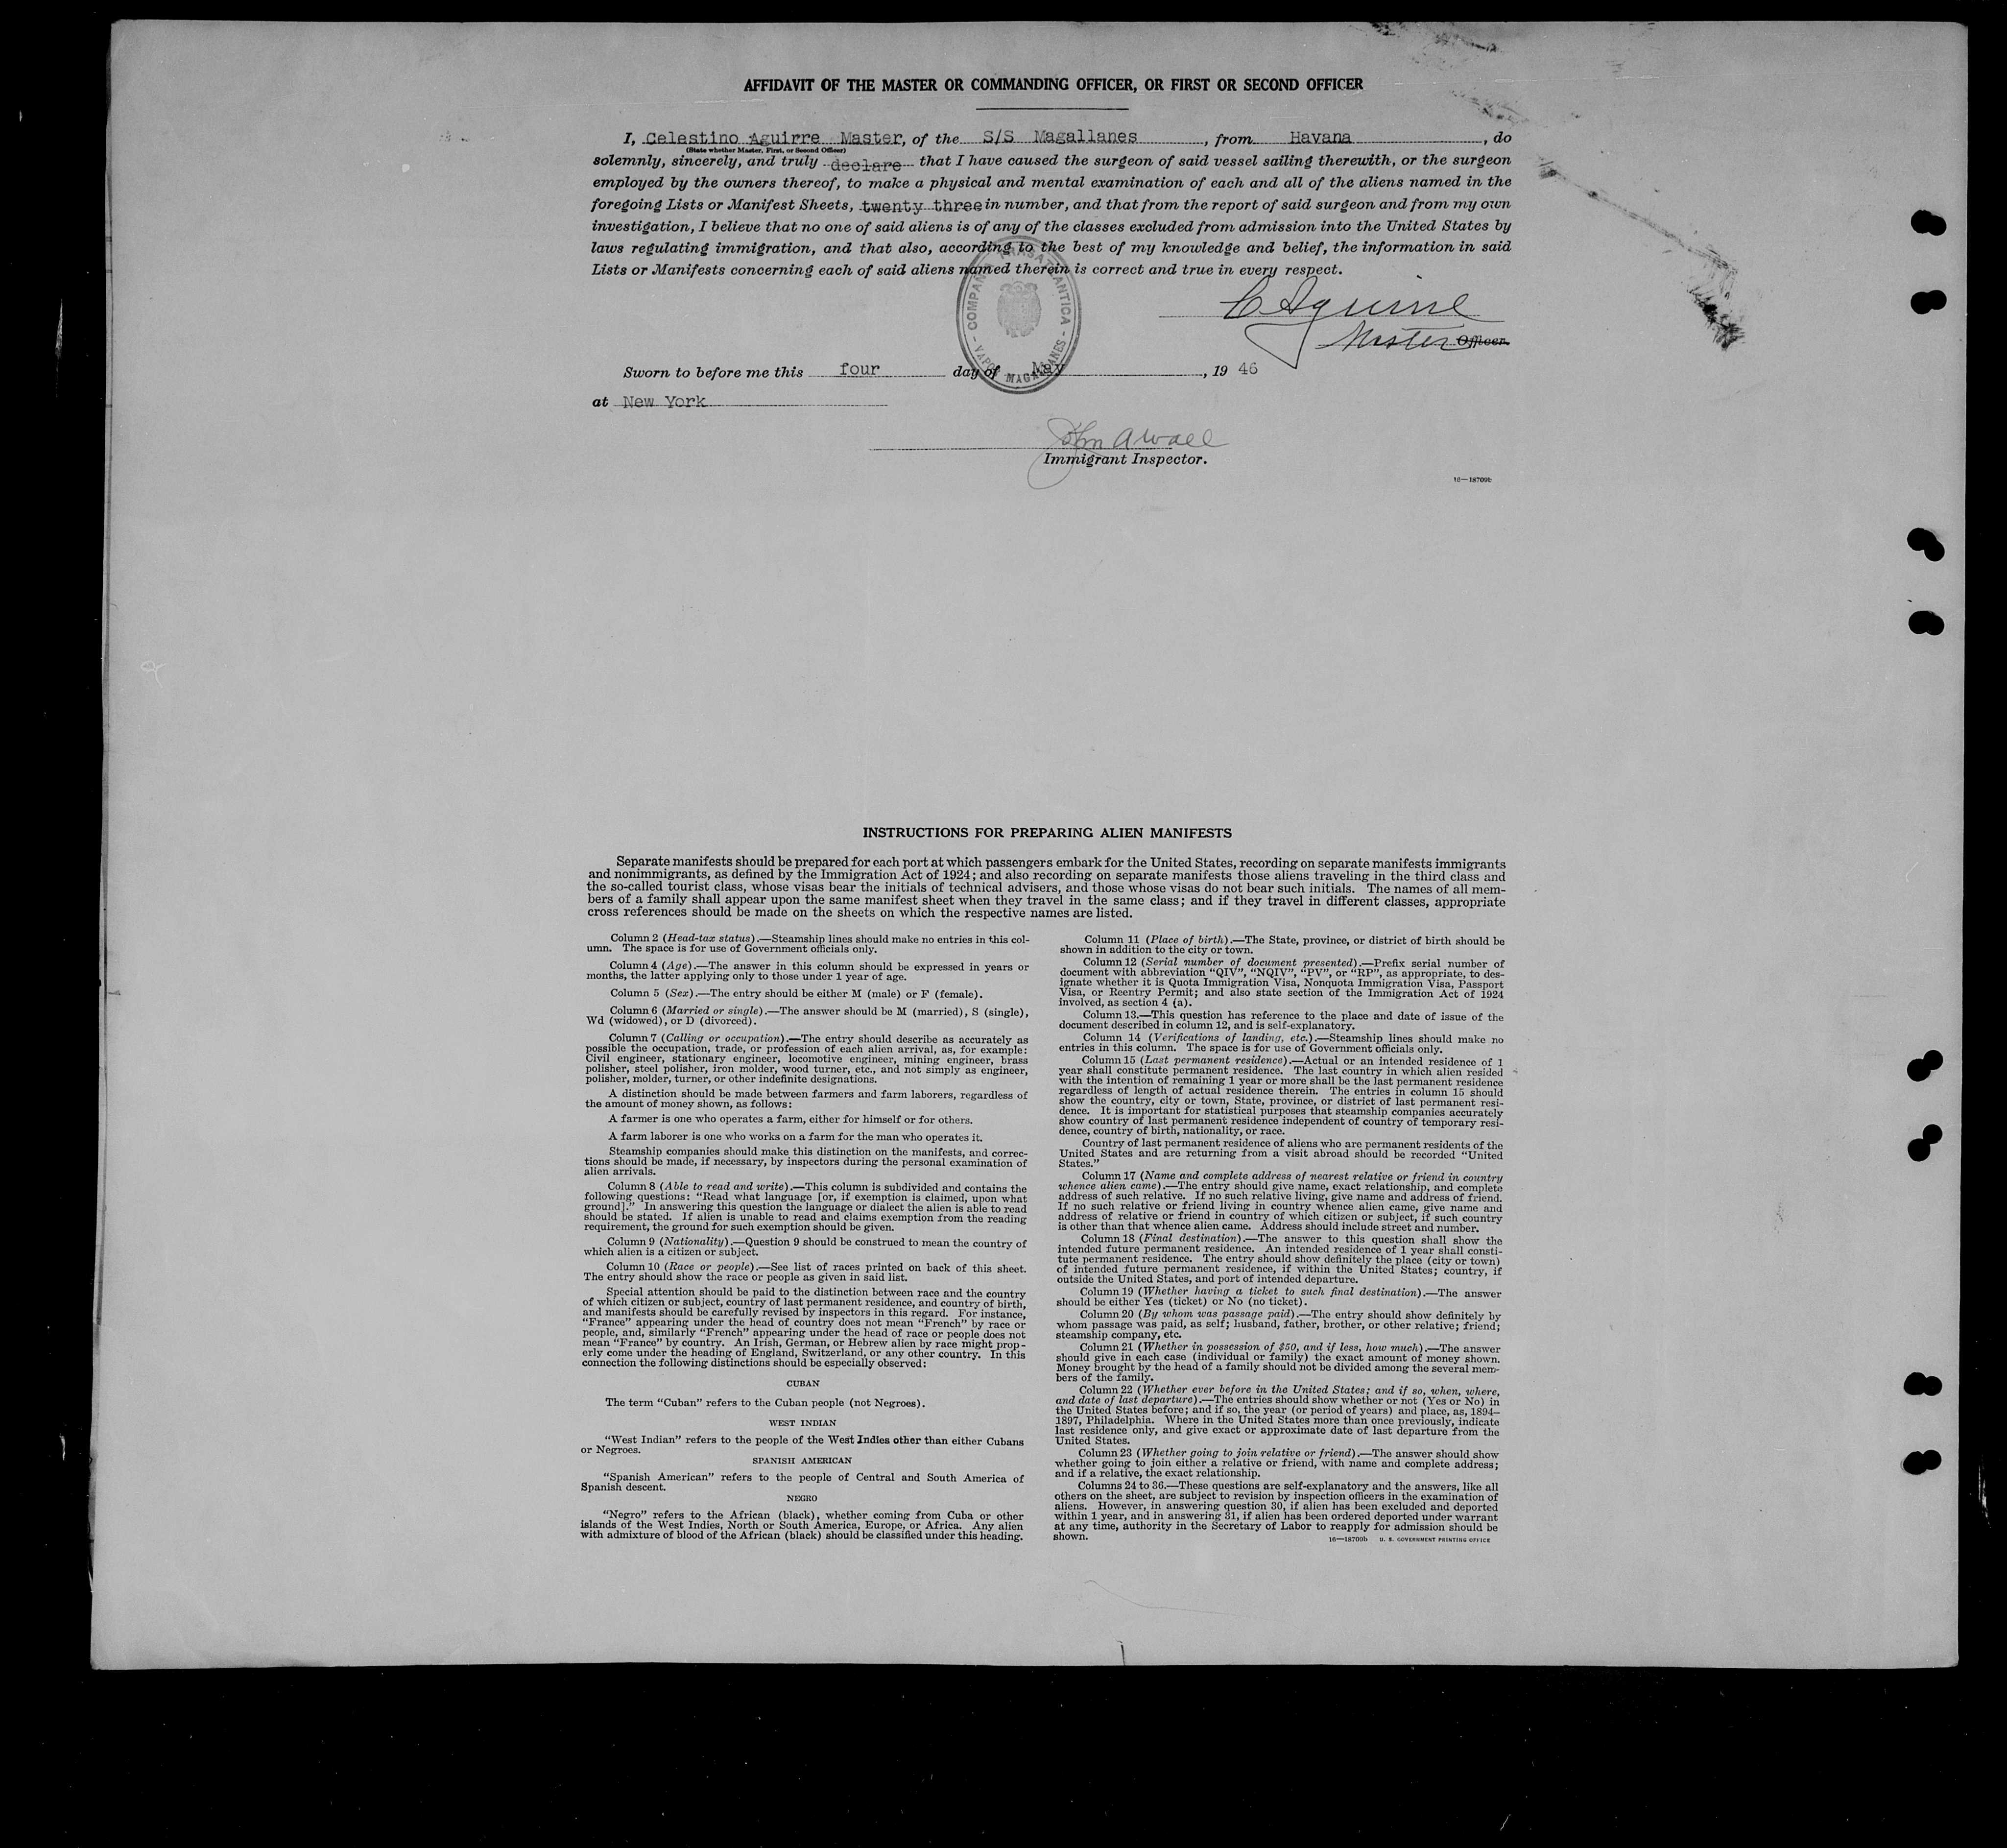 AFFIDAVIT OF THE MASTER OR COMMANDING OFFICER, OR FIRST OR SECOND OFFICER
I, Celestino Aguirre Master, of the S/S Magallanes, from Havana, do
(State whether Master, First, or Second Officer)
solemnly, sincerely, and truly declare that I have caused the surgeon of said vessel sailing therewith, or the surgeon
employed by the owners thereof, to make a physical and mental examination of each and all of the aliens named in the
foregoing Lists or Manifest Sheets, twenty three in number, and that from the report of said surgeon and from my own
investigation, I believe that no one of said aliens is of any of the classes excluded from admission into the United States by
laws regulating immigration, and that also, according to the best of my knowledge and belief, the information in said
Lists or Manifests concerning each of said aliens named therein is correct and true in every respect.
COMPAÑIA TRASATLANTICA - VAPOR MAGALLANES -
C Aguirre
Master Officer.
Sworn to before me this four day of May, 19 46
at New York
John A Wall
Immigrant Inspector.
16—18700b
INSTRUCTIONS FOR PREPARING ALIEN MANIFESTS
Separate manifests should be prepared for each port at which passengers embark for the United States, recording on separate manifests immigrants
and nonimmigrants, as defined by the Immigration Act of 1924; and also recording on separate manifests those aliens traveling in the third class and
the so-called tourist class, whose visas bear the initials of technical advisers, and those whose visas do not bear such initials. The names of all mem-
bers of a family shall appear upon the same manifest sheet when they travel in the same class; and if they travel in different classes, appropriate
cross references should be made on the sheets on which the respective names are listed.
Column 2 (Head-tax status).—Steamship lines should make no entries in this col-
umn. The space is for use of Government officials only.
Column 4 (Age).—The answer in this column should be expressed in years or
months, the latter applying only to those under 1 year of age.
Column 5 (Sex).—The entry should be either M (male) or F (female).
Column 6 (Married or single).—The answer should be M (married), S (single),
Wd (widowed), or D (divorced).
Column 7 (Calling or occupation).—The entry should describe as accurately as
possible the occupation, trade, or profession of each alien arrival, as, for example:
Civil engineer, stationary engineer, locomotive engineer, mining engineer, brass
polisher, steel polisher, iron molder, wood turner, etc., and not simply as engineer,
polisher, molder, turner, or other indefinite designations.
A distinction should be made between farmers and farm laborers, regardless of
the amount of money shown, as follows:
A farmer is one who operates a farm, either for himself or for others.
A farm laborer is one who works on a farm for the man who operates it.
Steamship companies should make this distinction on the manifests, and correc-
tions should be made, if necessary, by inspectors during the personal examination of
alien arrivals.
Column 8 (Able to read and write).—This column is subdivided and contains the
following questions: “Read what language [or, if exemption is claimed, upon what
ground].” In answering this question the language or dialect the alien is able to read
should be stated. If alien is unable to read and claims exemption from the reading
requirement, the ground for such exemption should be given.
Column 9 (Nationality).—Question 9 should be construed to mean the country of
which alien is a citizen or subject.
Column 10 (Race or people).—See list of races printed on back of this sheet.
The entry should show the race or people as given in said list.
Special attention should be paid to the distinction between race and the country
of which citizen or subject, country of last permanent residence, and country of birth,
and manifests should be carefully revised by inspectors in this regard. For instance,
“France” appearing under the head of country does not mean “French” by race or
people, and, similarly “French” appearing under the head of race or people does not
mean “France” by country. An Irish, German, or Hebrew alien by race might prop-
erly come under the heading of England, Switzerland, or any other country. In this
connection the following distinctions should be especially observed:
CUBAN
The term “Cuban” refers to the Cuban people (not Negroes).
WEST INDIAN
“West Indian” refers to the people of the West Indies other than either Cubans
or Negroes.
SPANISH AMERICAN
“Spanish American” refers to the people of Central and South America of
Spanish descent.
NEGRO
“Negro” refers to the African (black), whether coming from Cuba or other
islands of the West Indies, North or South America, Europe, or Africa. Any alien
with admixture of blood of the African (black) should be classified under this heading.
Column 11 (Place of birth).—The State, province, or district of birth should be
shown in addition to the city or town.
Column 12 (Serial number of document presented).—Prefix serial number of
document with abbreviation “QIV”, “NQIV”, “PV”, or “RP”, as appropriate, to des-
ignate whether it is Quota Immigration Visa, Nonquota Immigration Visa, Passport
Visa, or Reentry Permit; and also state section of the Immigration Act of 1924
involved, as section 4 (a).
Column 13.—This question has reference to the place and date of issue of the
document described in column 12, and is self-explanatory.
Column 14 (Verifications of landing, etc.).—Steamship lines should make no
entries in this column. The space is for use of Government officials only.
Column 15 (Last permanent residence).—Actual or an intended residence of 1
year shall constitute permanent residence. The last country in which alien resided
with the intention of remaining 1 year or more shall be the last permanent residence
regardless of length of actual residence therein. The entries in column 15 should
show the country, city or town, State, province, or district of last permanent resi-
dence. It is important for statistical purposes that steamship companies accurately
show country of last permanent residence independent of country of temporary resi-
dence, country of birth, nationality, or race.
Country of last permanent residence of aliens who are permanent residents of the
United States and are returning from a visit abroad should be recorded “United
States.”
Column 17 (Name and complete address of nearest relative or friend in country
whence alien came).—The entry should give name, exact relationship, and complete
address of such relative. If no such relative living, give name and address of friend.
If no such relative or friend living in country whence alien came, give name and
address of relative or friend in country of which citizen or subject, if such country
is other than that whence alien came. Address should include street and number.
Column 18 (Final destination).—The answer to this question shall show the
intended future permanent residence. An intended residence of 1 year shall consti-
tute permanent residence. The entry should show definitely the place (city or town)
of intended future permanent residence, if within the United States; country, if
outside the United States, and port of intended departure.
Column 19 (Whether having a ticket to such final destination).—The answer
should be either Yes (ticket) or No (no ticket).
Column 20 (By whom was passage paid).—The entry should show definitely by
whom passage was paid, as self; husband, father, brother, or other relative; friend;
steamship company, etc.
Column 21 (Whether in possession of $50, and if less, how much).—The answer
should give in each case (individual or family) the exact amount of money shown.
Money brought by the head of a family should not be divided among the several mem-
bers of the family.
Column 22 (Whether ever before in the United States; and if so, when, where,
and date of last departure).—The entries should show whether or not (Yes or No) in
the United States before; and if so, the year (or period of years) and place, as, 1894–
1897, Philadelphia. Where in the United States more than once previously, indicate
last residence only, and give exact or approximate date of last departure from the
United States.
Column 23 (Whether going to join relative or friend).—The answer should show
whether going to join either a relative or friend, with name and complete address;
and if a relative, the exact relationship.
Columns 24 to 36.—These questions are self-explanatory and the answers, like all
others on the sheet, are subject to revision by inspection officers in the examination of
aliens. However, in answering question 30, if alien has been excluded and deported
within 1 year, and in answering 31, if alien has been ordered deported under warrant
at any time, authority in the Secretary of Labor to reapply for admission should be
shown.
16—18700b U. S. GOVERNMENT PRINTING OFFICE